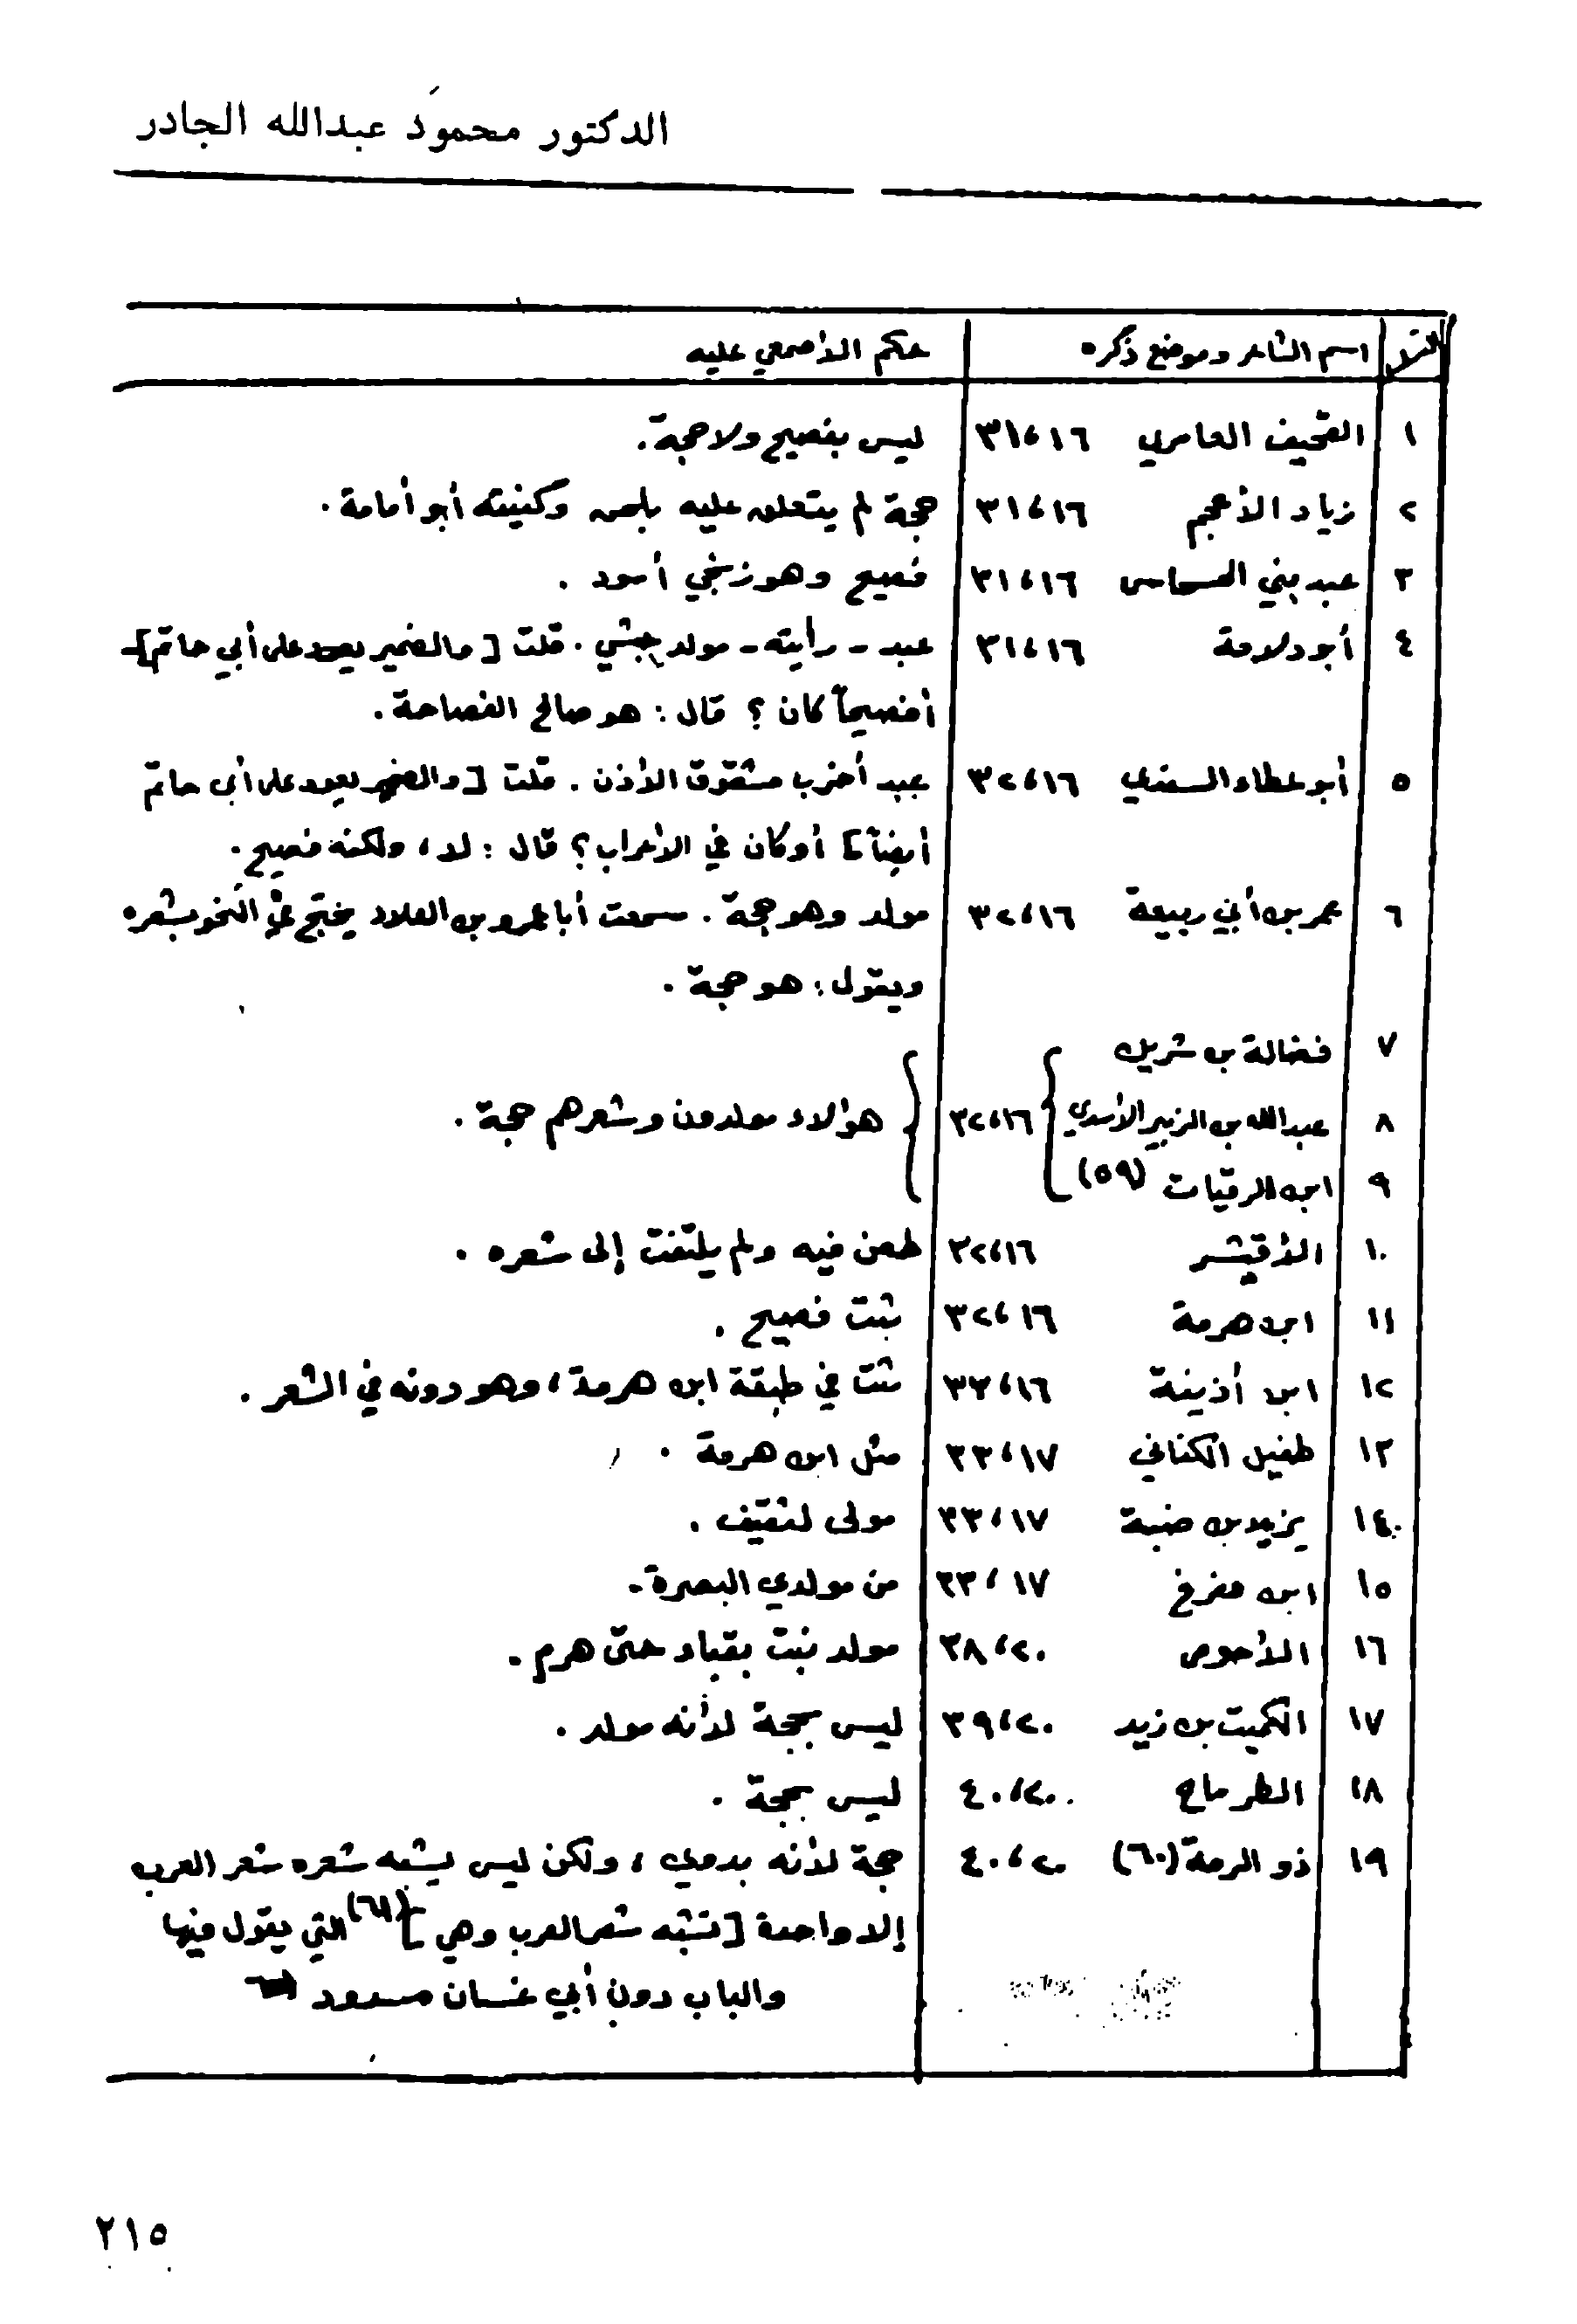 الدكتور محمود عبدالله الجادر
اسم الشاعر وموضع ذكره حكم الأصمعي عليه
١ القحيف العامري ١٦، ٣١ ليس بفصيح ولا حجة.
٢ زياد الأعجم ١٦، ٣١ حجة لم يتعلق عليه بلحن وكنيته أبو أمامة.
٣ عبد بني الحسحاس ١٦، ٣١ فصيح وهو زنجي أسود.
٤ أبو دلامة ١٦، ٣١ عبد - رأيته - مولد حبشي. قلت [والضمير يعود على أبي حاتم] -
أفصيحاً كان؟ قال: هو صالح الفصاحة.
٥ أبو عطاء السندي ١٦، ٣٢ عبد أخرب مشقوق الأذن. قلت [والضمير يعود على أبي حاتم
أيضاً] أو كان في الأعراب؟ قال: لا، ولكنه فصيح.
٦ عمر بن أبي ربيعة ١٦، ٣٢ مولد وهو حجة. سمعت أبا عمرو بن العلاء يحتج في النحو بشعره
ويقول: هو حجة.
٧ فضالة بن شريك
٨ عبدالله بن الزبير الأسدي } ١٦، ٣٢ { هؤلاء مولدون وشعرهم حجة.
٩ ابن الرقيات (٥٩)
١٠ الأقيشر ١٦، ٣٢ طعن فيه ولم يلتفت إلى شعره.
١١ ابن هرمة ١٦، ٣٢ ثبت فصيح.
١٢ ابن أذينة ١٦، ٣٣ ثبت في طبقة ابن هرمة، وهو دونه في الشعر.
١٣ طفيل الكناني ١٧، ٣٣ مثل ابن هرمة.
١٤ يزيد بن ضبة ١٧، ٣٣ مولى لثقيف.
١٥ ابن مفرغ ١٧، ٣٣ من مولدي البصرة.
١٦ الأحوص ٢٠، ٣٨ مولد نبت بقباء حتى هرم.
١٧ الكميت بن زيد ٢٠، ٣٩ ليس بحجة لأنه مولد.
١٨ الطرماح ٢٠، ٤٠ ليس بحجة.
١٩ ذو الرمة (٦٠) ٢٠، ٤٠ حجة لأنه بدوي، ولكن ليس يشبه شعره شعر العرب
إلا واحدة [تشبه شعر العرب وهي] (٦١) التي يقول فيها
والباب دون أبي غسان مسدود
٢١٥